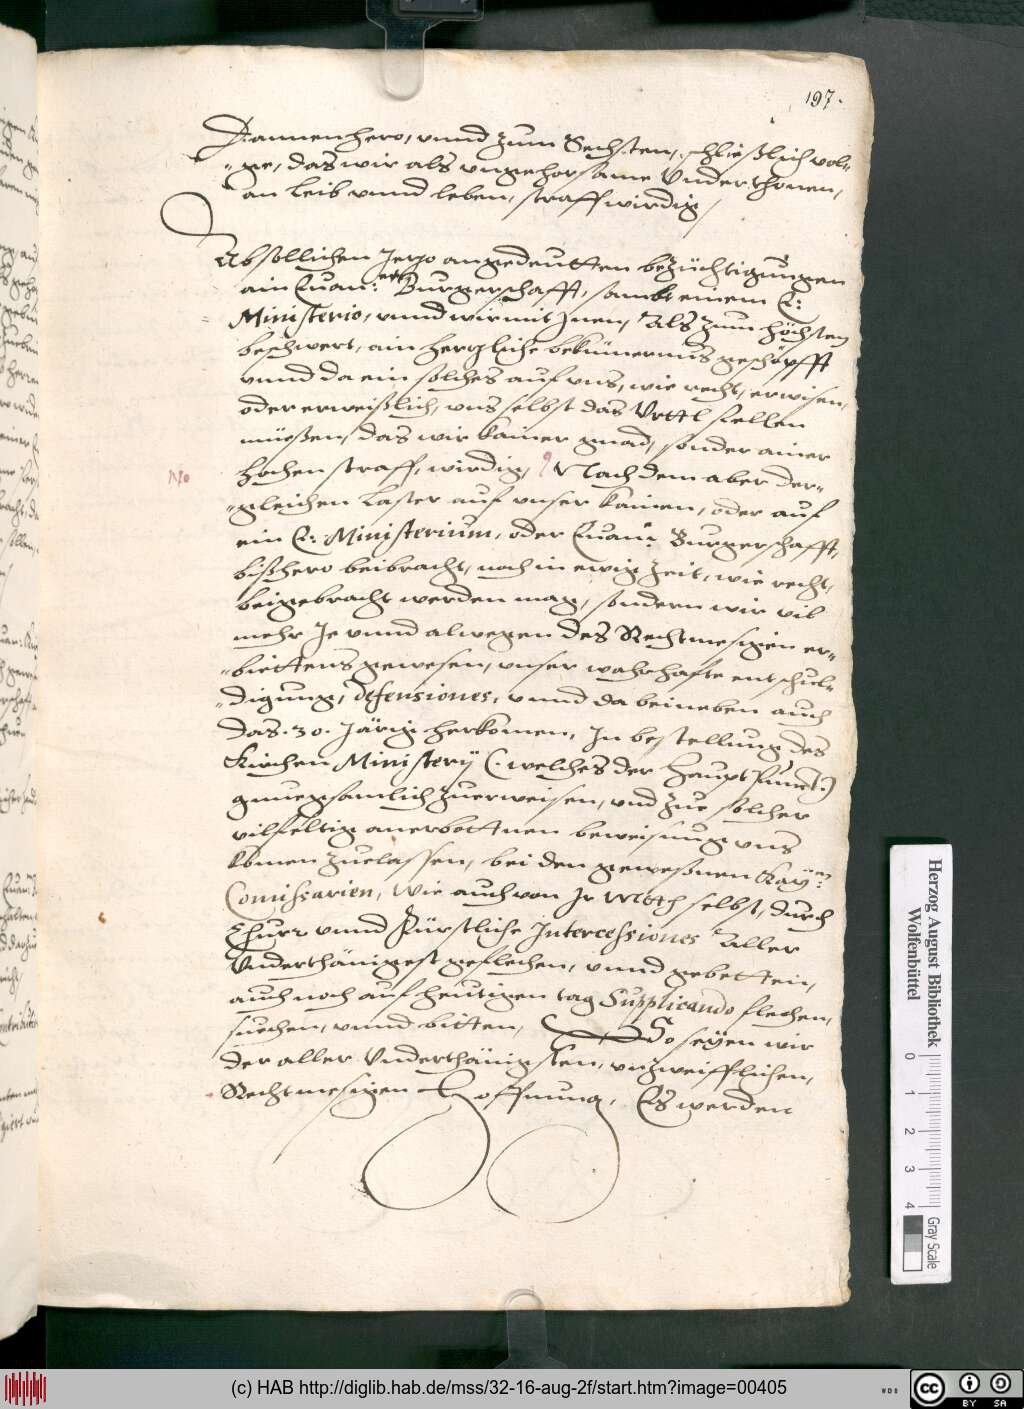 197.
Dannenhero, vnnd zum Sechsten, schließlich vol-
ge, das wir als vngehorsame Vnderthonen,
an Leib vnnd leben, straffwirdig,
Ab sollichen Jezo angedeutten bezüchtigungen
ain Euan: Burgerschafft, sambt einem E:
Ministerio, vnnd wir mit Jnen, Als zum höchsten
beschwert, ain herzliche bekümernus geschöpfft
vnnd da ein solches auf vns, wie recht, erwisen,
oder erweißlich, vns selbst das Vrttl fellen
müeßen, das wir kainer gnad, sonder ainer
hochen straff, wirdig, Nach dem aber der-
No
gleichen Laster auf vnser kainen, oder auf
ein E: Ministerium, oder Euan: Burgerschafft,
bißhero beibracht, noch in ewig Zeit, wie recht,
beigebracht werden mag, sondern wir vil
mehr Je vnnd alwegen des Rechtmesigen er-
biettens gewesen, vnser wahrhafte entschul-
digung, defensiones, vnnd da beineben auch
das .30. Järig herkomen, In bestellung des
Kirchen Ministerÿ (welches der Haupt Punct)
gnuegsamlich zuerweisen, vnd zue solcher
vilfeltig anerbottnen beweisung vns
komen zuelassen, bei den geweßnen Kaÿ:
Comissarien, Wie auch von Jr Mtt selbst, durch
Chur: vnnd Fürstliche Intercessiones Aller
Vnderthänigest geflechen, vnnd gebetten,
auch noch auf heutigen tag Supplicando flechen,
suechen, vnnd bitten, So seÿen wir
der aller Vnderthänigsten, vnzweifflichen,
Rechtmesigen Hoffnung, Es werden
Herzog August Bibliothek
Wolfenbüttel
0 1 2 3 4
Gray Scale
(c) HAB http://diglib.hab.de/mss/32-16-aug-2f/start.htm?image=00405
WDB
cc BY SA